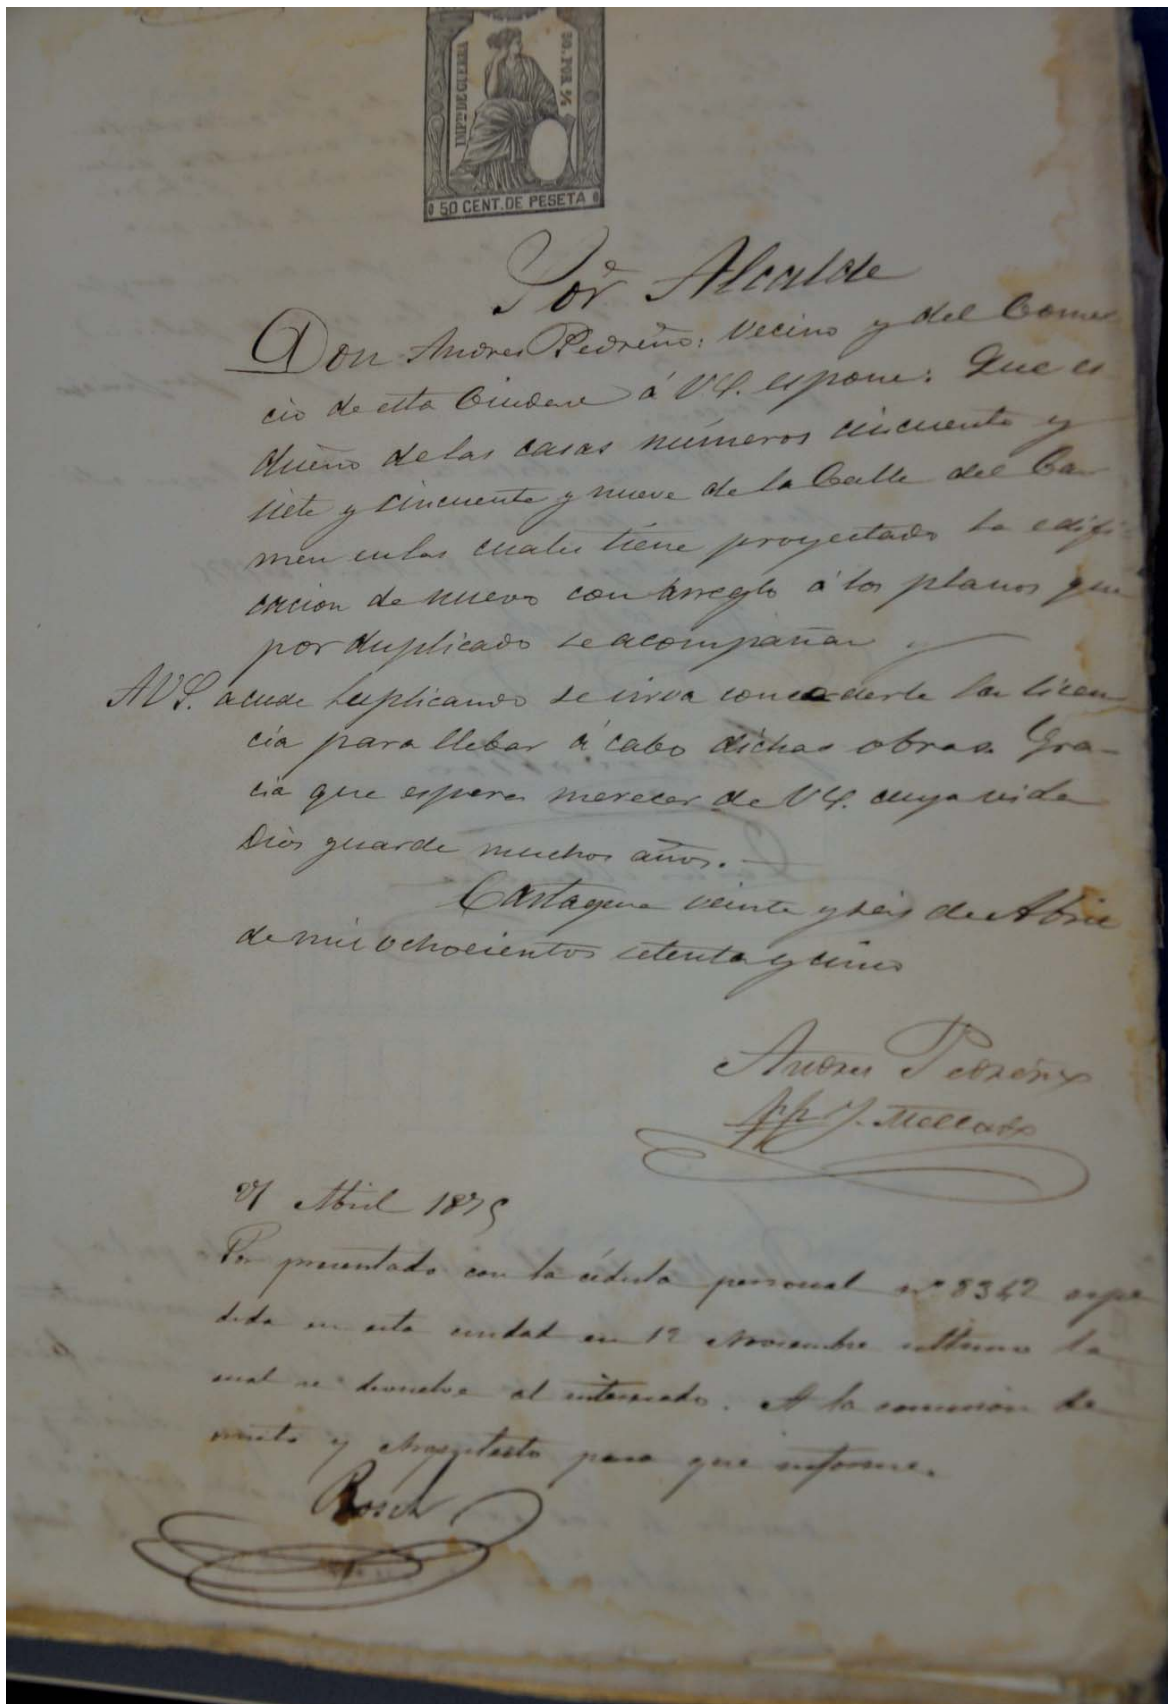 IMPTO DE GUERRA
50 CENT. DE PESETA
Sor. Alcalde
Don Andres Pedreño: Vecino y del Comer
cio de esta Ciudad á V.S. espone: Que es
dueño de las casas números cincuenta y
siete y cincuenta y nueve de la Calle del Car
men en las cuales tiene proyectado la edifi-
cacion de nuevo con arreglo á los planos que
por duplicado se acompañan y
A V.S. acude suplicando se sirva concederle la licen
cia para llebar á cabo dichas obras. Gra-
cia que espera merecer de V.S. cuya vida
Dios guarde muchos años.
Cartagena veinte y seis de Abril
de mil ochocientos setenta y cinco
Andres Pedreño
pp J. Mellado
27 Abril 1875
Por presentado con la cédula personal nº 8342 espe
dida en esta ciudad en 12 Noviembre ultimo la
cual se devuelve al interesado. A la comision de
ornato y Arquitecto para que informe.
Bosch